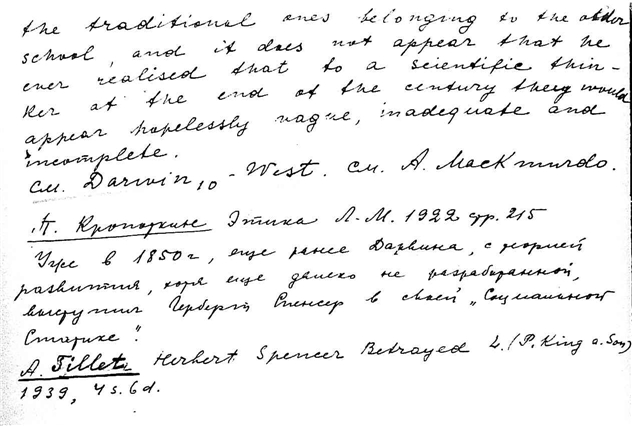 the traditional ones belonging to the older
school, and it does not appear that he
ever realised that to a scientific thin-
ker at the end of the century they would
appear hopelessly vague, inadequate and
incomplete.
см. Darwin, 10 - West. см. A. Mackmurdo.
П. Кропоткин Этика Л.-М. 1922 стр. 215
Уже в 1850 г, еще ранее Дарвина, с теорией
развития, хотя еще далеко не разработанной,
выступил Герберт Спенсер в своей „Социальной
Статике".
A. Tillet Herbert Spencer Betrayed L. (P. King a. Son)
1939, 4s. 6d.